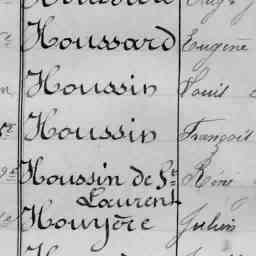 Houssard Eugène
Houssin Louis
Houssin François
Houssin de St
Laurent René
Houyère Julien